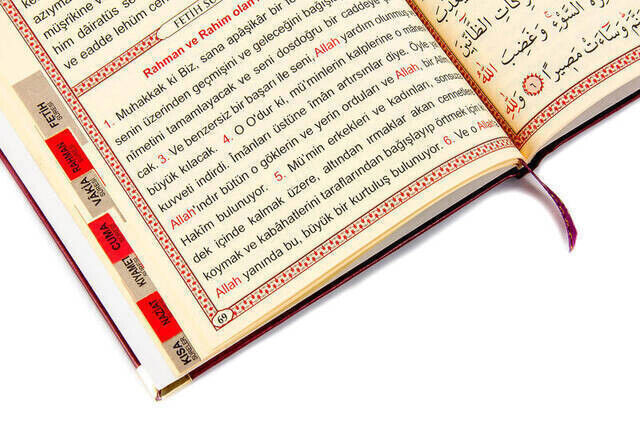 azıyma
müşrikine
him dâiratüs
ve eadde lehüm cehenn
FETİH SÛ
Rahman ve Rahim olan
1. Muhakkak ki Biz, sana apâşikâr bir
senin üzerinden geçmişini ve geleceğini bağışla
nimetini tamamlayacak ve seni dosdoğru bir caddeye
cak. 3. Ve benzersiz bir başarı ile seni, Allah yardım olunmuş
büyük kılacak. 4. O O'dur ki, mü'minlerin kalplerine o mâne
kuvveti indirdi. Îmânları üstüne îmân artırsınlar diye. Öyle y
Allah'indir bütün o göklerin ve yerin orduları ve Allah, bir Alîm
Hakîm bulunuyor. 5. Mü'min erkekleri ve kadınları, sonsuz
dek içinde kalmak üzere, altından ırmaklar akan cennetle
koymak ve kabâhatlerini taraflarından bağışlayıp örtmek için
Allah yanında bu, büyük bir kurtuluş bulunuyor. 6. Ve o Allah
69
FETİH
SURESİ
RAHMAN
SURESİ
VAKIA
SURESİ
CUMA
SURESİ
KIYAMET
SURESİ
NAZİAT
SURESİ
KISA
SURELER
السَّوْءِ وَغَضِبَ اللهُ
وَسَاءَتْ مَصِيرًا ٦ وَلِلّٰهِ